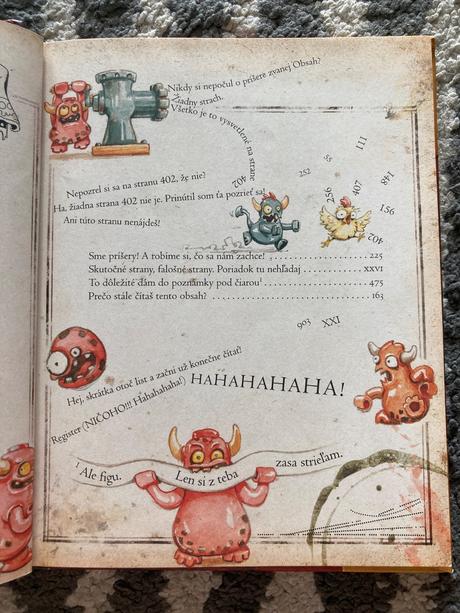 Nikdy si nepočul o príšere zvanej Obsah?
Žiadny strach.
Všetko je to vysvetlené na strane
402
111
55
252
148
407
256
156
402
Nepozrel si sa na stranu 402, že nie?
Ha, žiadna strana 402 nie je. Prinútil som ťa pozrieť sa!
Ani túto stranu nenájdeš!
Sme príšery! A robíme si, čo sa nám zachce! . . . . . . . . . . . . . . . 225
Skutočné strany, falošné strany. Poriadok tu nehľadaj . . . . . . . . . . XXVI
To dôležité dám do poznámky pod čiarou¹ . . . . . . . . . . . . . . . 475
Prečo stále čítaš tento obsah? . . . . . . . . . . . . . . . . . . . . 163
903 XXI
Hej, skrátka otoč list a začni už konečne čítať!
Register (NIČOHO!!! Hahahahaha!) HAHAHAHAHA!
¹ Ale figu. Len si z teba zasa strieľam.